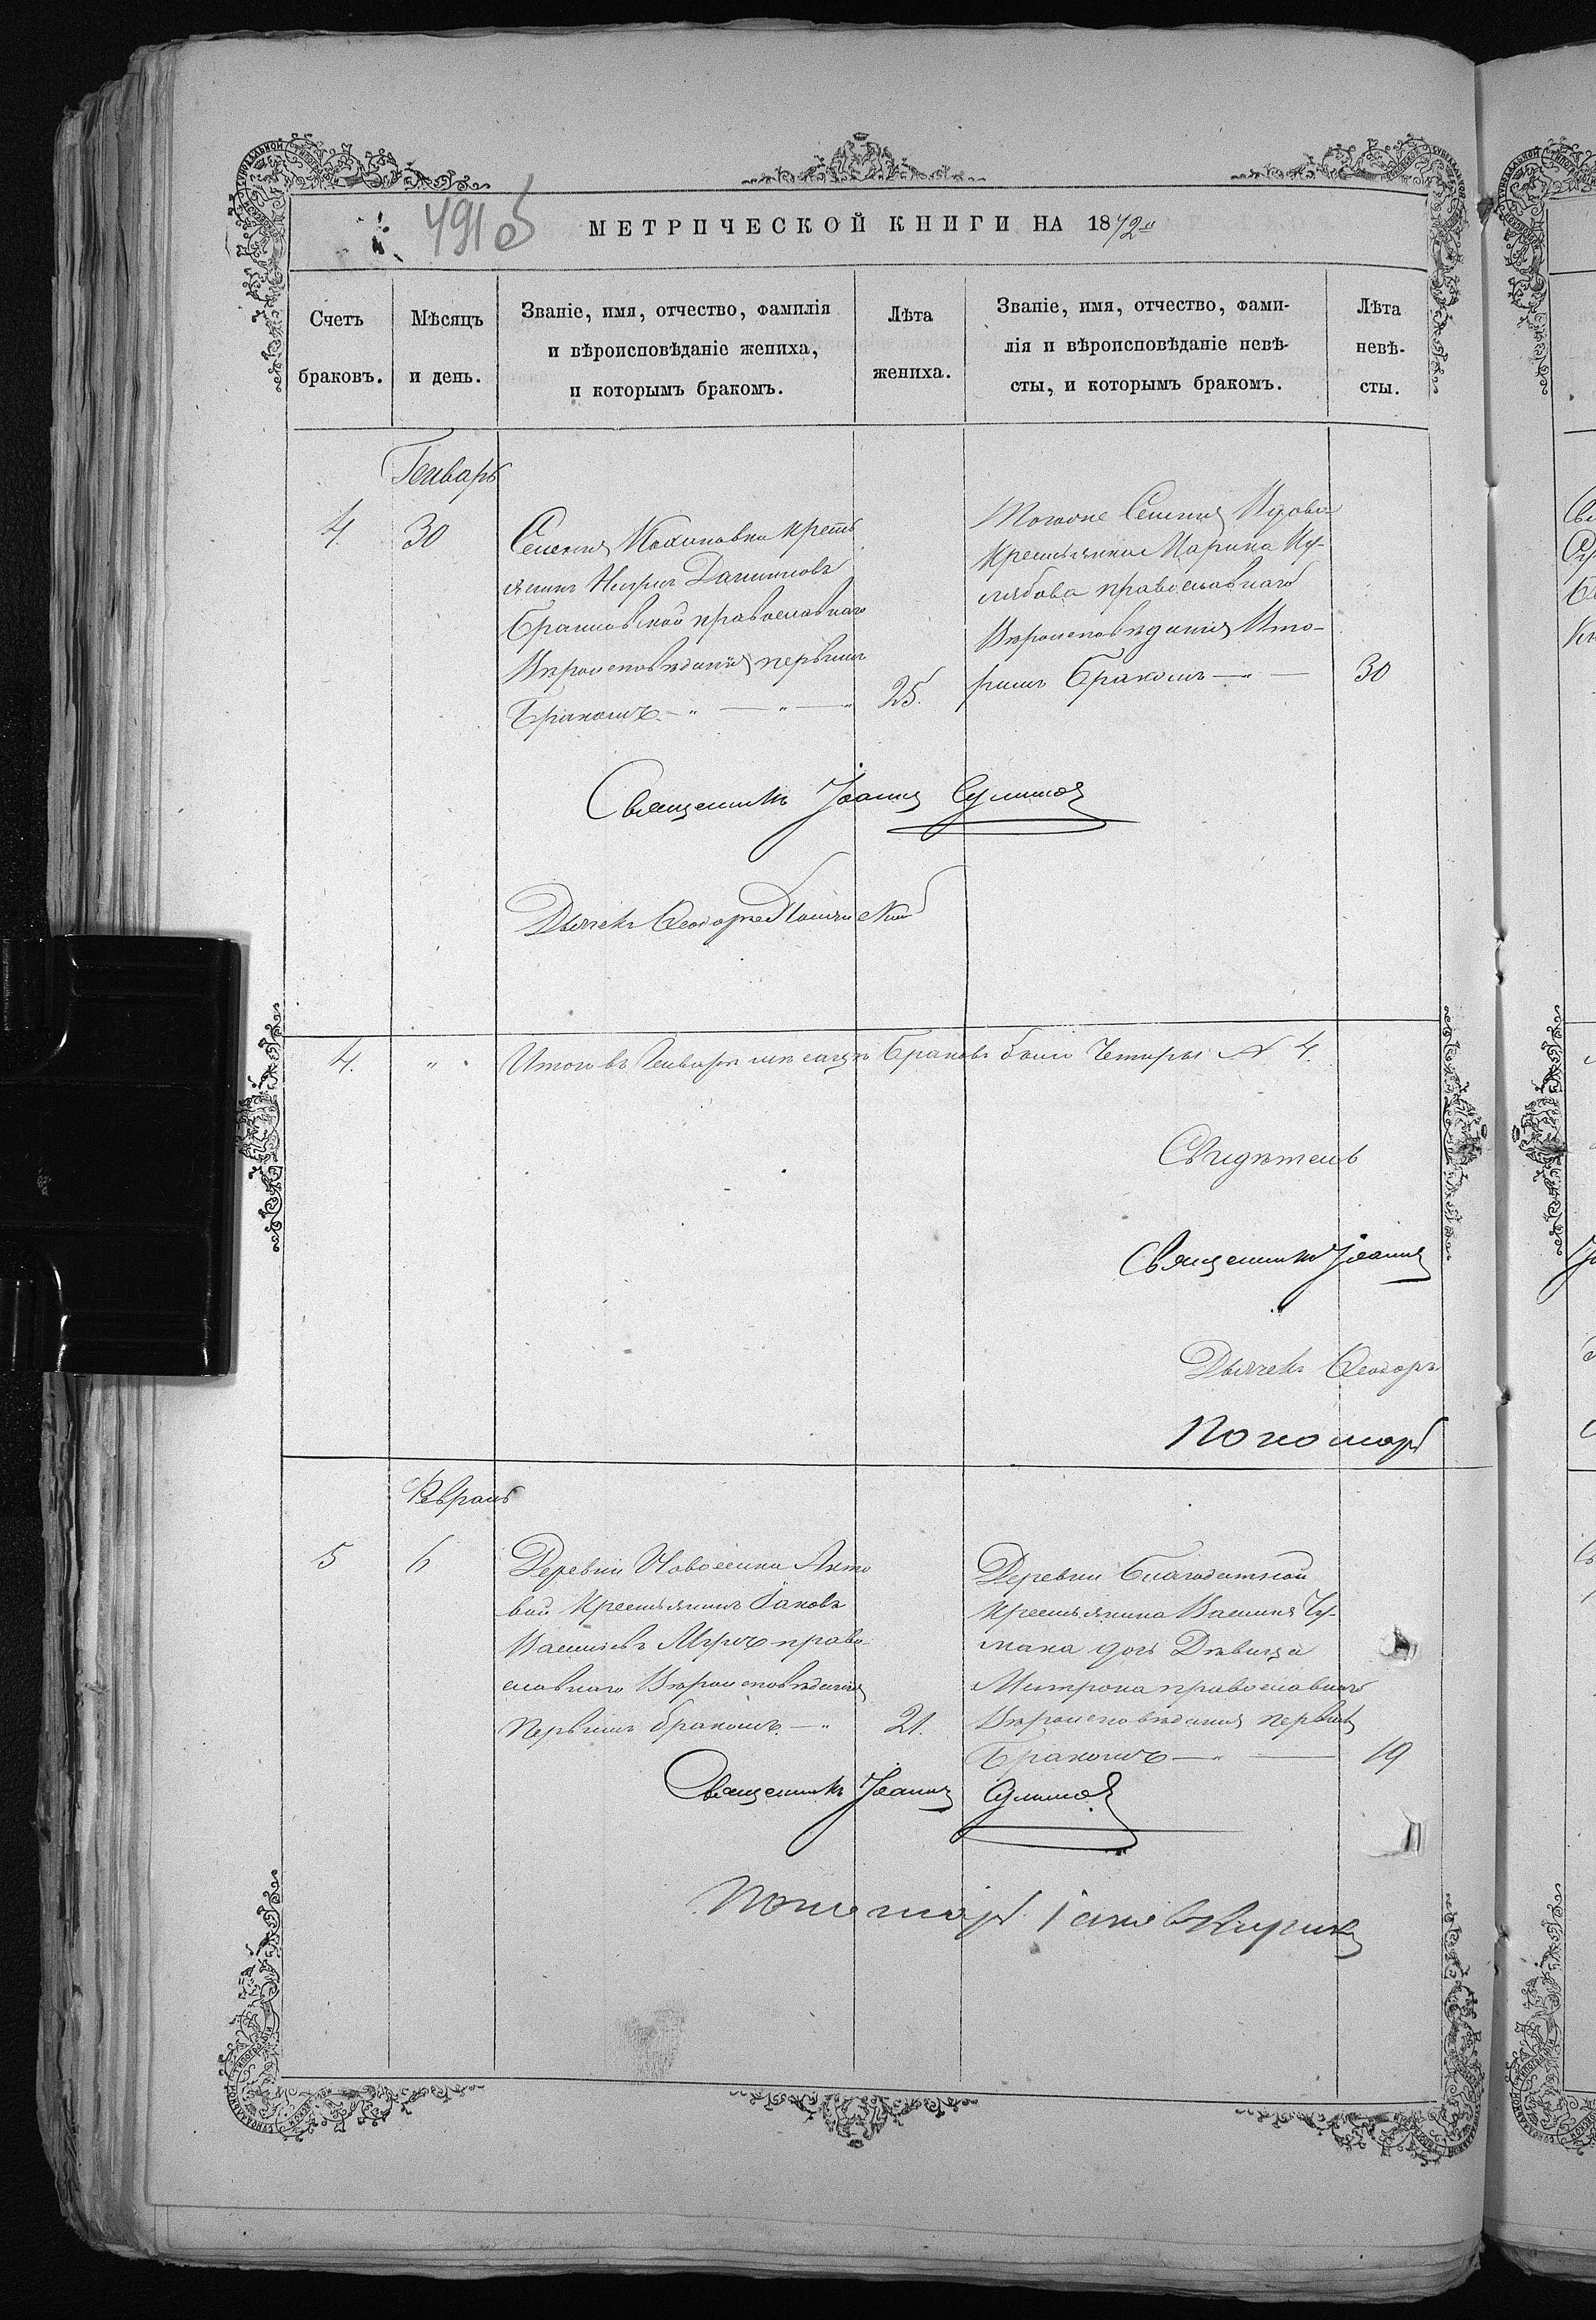 491 об
МЕТРИЧЕСКОЙ КНИГИ НА 1872
Счетъ браковъ.
Мѣсяцъ и день.
Званіе, имя, отчество, фамилія
и вѣроисповѣданіе жениха,
и которымъ бракомъ.
Лѣта жениха.
Званіе, имя, отчество, фами-
лія и вѣроисповѣданіе невѣ-
сты, и которымъ бракомъ.
Лѣта невѣ-
сты.
Генварь
4. 30
Селенія Кохановки крестъ
янинъ
православнаго
Вѣроисповѣданія первымъ
Бракомъ 25.
Тогоже Селенія Вдова
Крестьянка Марина Ку-
лябова православнаго
Вѣроисповѣданія Вто-
рымъ Бракомъ 30
Священникъ Іоаннъ
Дьячекъ Ѳеодоръ
4. " Итого въ Генварѣ мѣсяцѣ Браковъ было Четыри № 4.
Священникъ Іоаннъ
Дьячекъ Ѳеодоръ
Пономарь
Февраль
5 6
Деревни
вой Крестьянинъ Іаковъ
Василіевъ право
славнаго Вѣроисповѣданія
Первымъ бракомъ 21.
Деревни Благодатной
Крестьянина Василія Чу-
мака дочь Дѣвица
Митрона православнаго
Вѣроисповѣданія первымъ
Бракомъ 19
Священникъ Іоаннъ
Пономарь Іаковъ